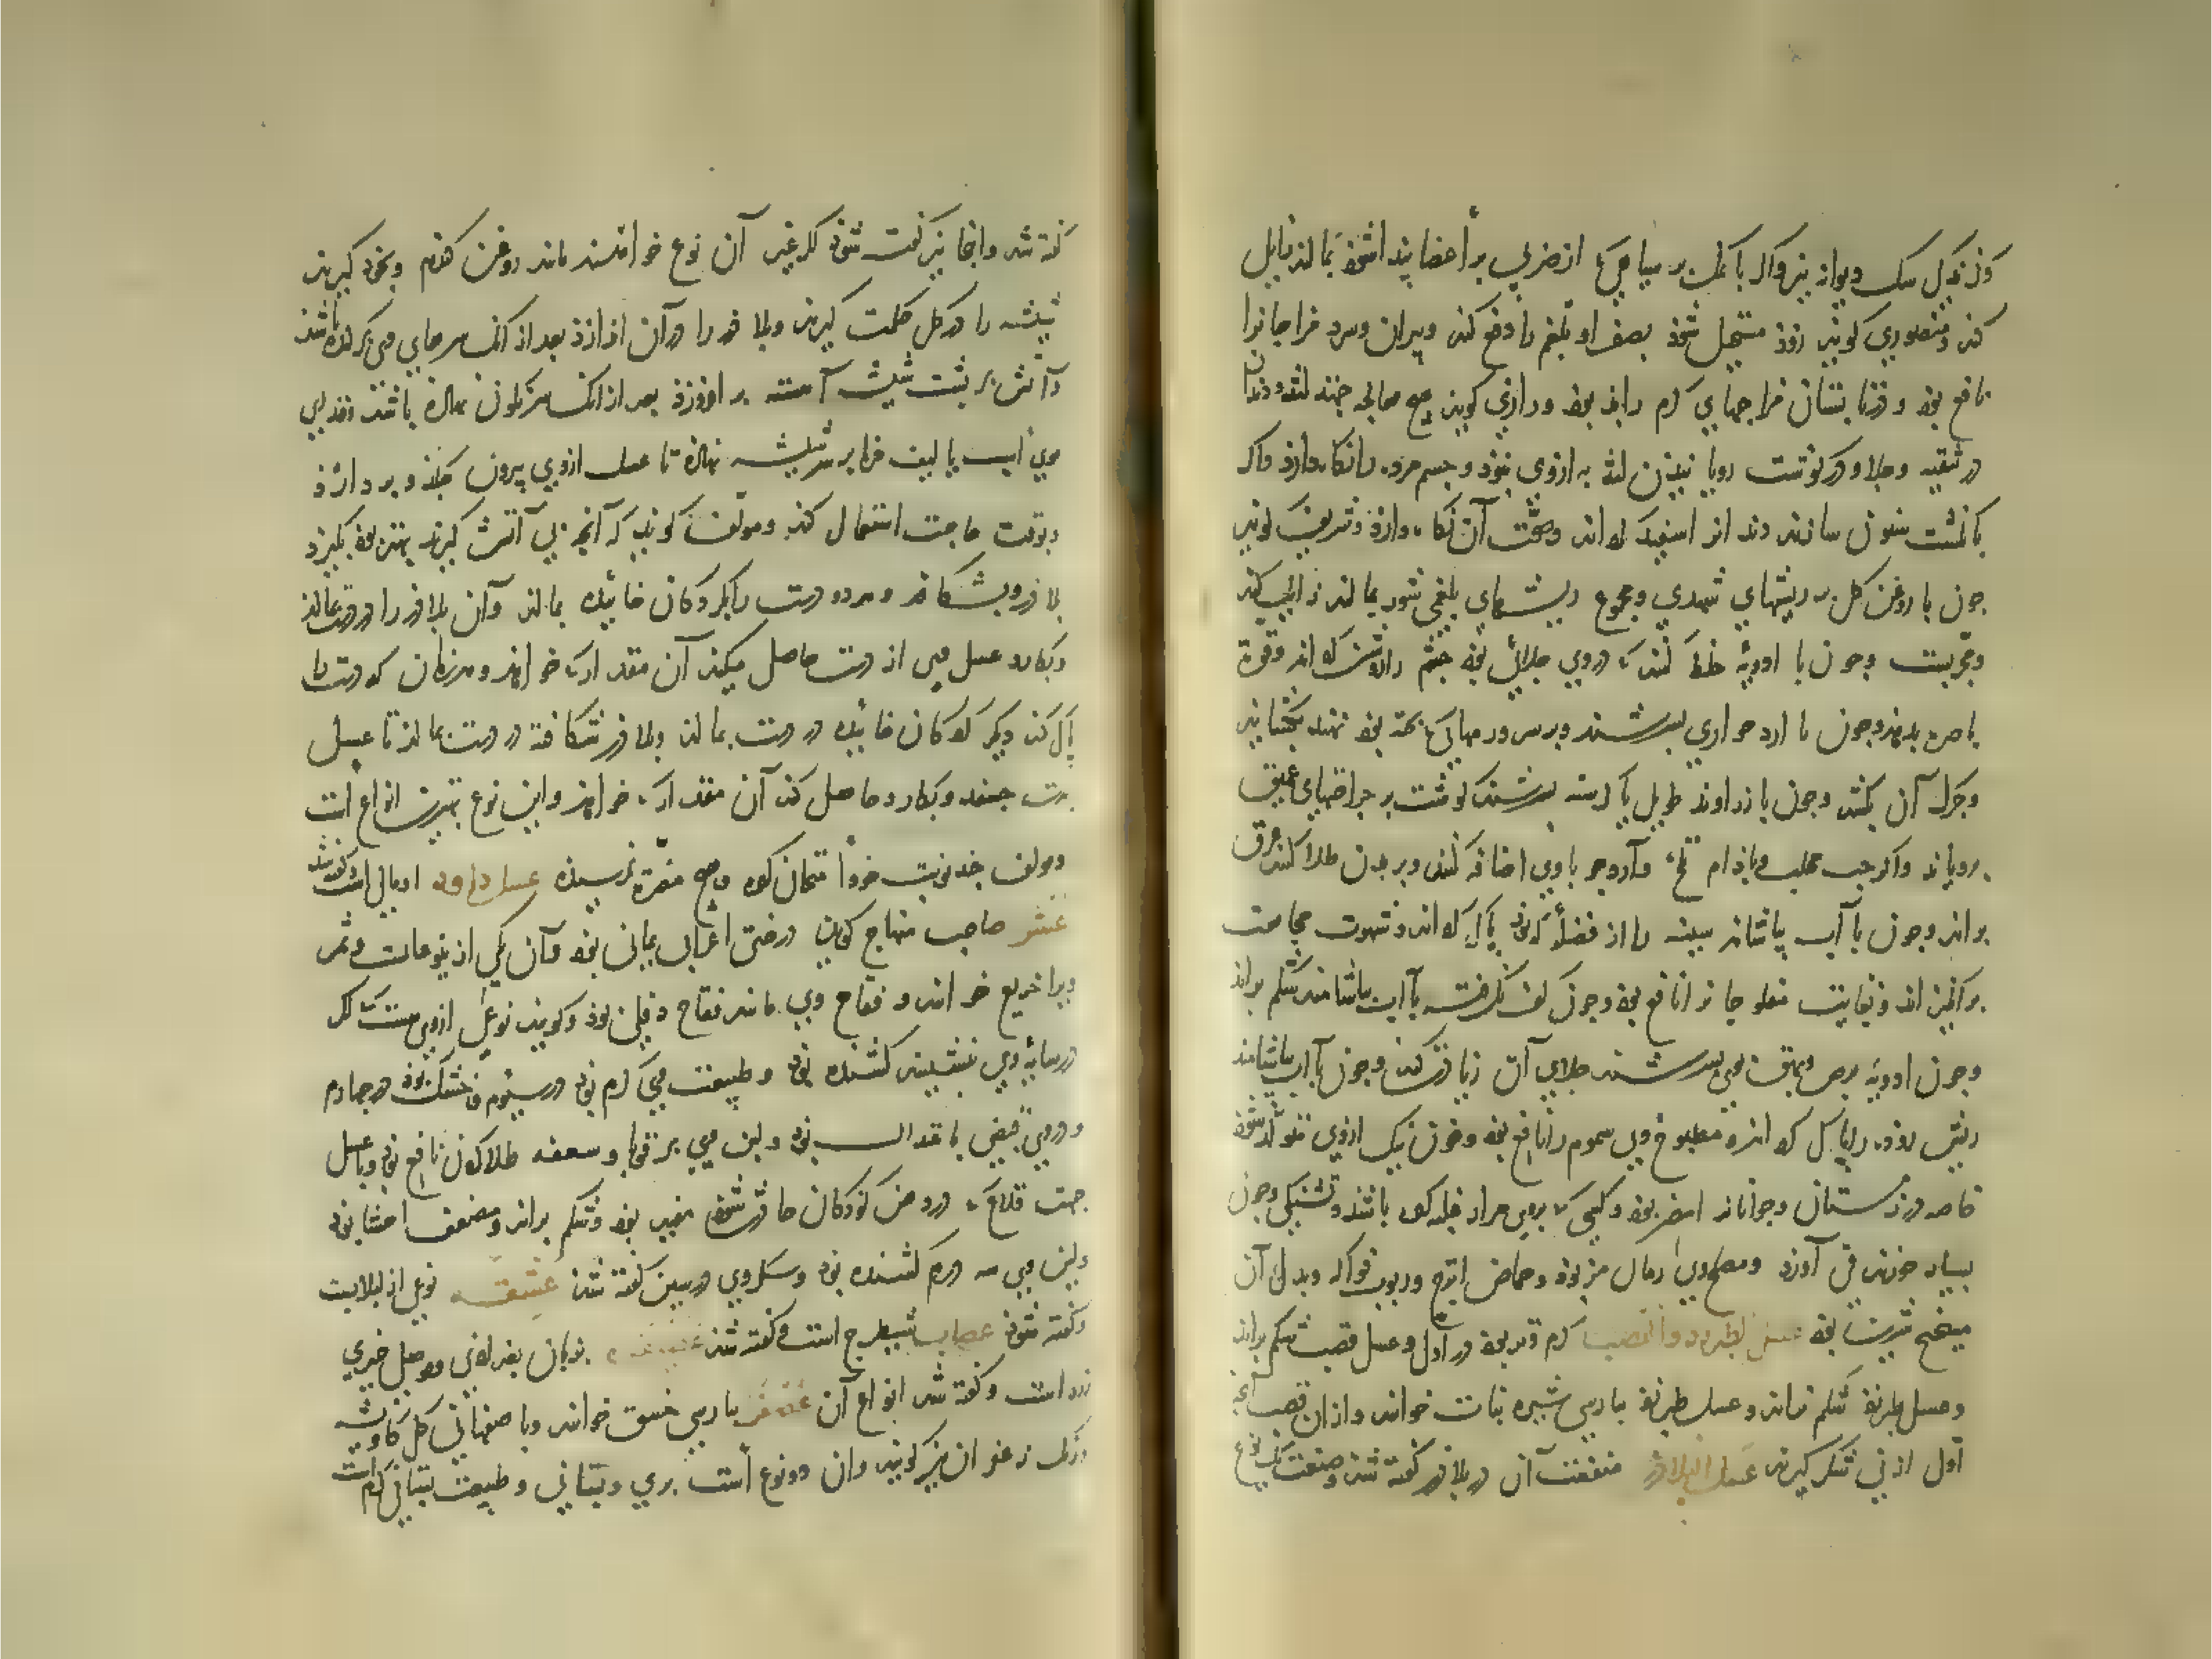 کزندکی سک دیوانه نیز و اکر با نمک بر سیاهی که از ضربی بر اعضا پیدا شود بمالند زایل
کند و منصوری کوید زود مستحیل شود بصفرا و بلغم را دفع کند و پیران و سرد مزاجانرا
نافع بود و در تابستان مزاجهای کرم را بد بود و رازی کوید هیچ معالجه چند لثه و دندان
در تنقیه و جلا و در کوشت رویانیدن لثه به ازوی نبود و جسم مرده را نکاه دارد و اکر
بانکشت سنون سازند دندانرا سفید کرداند و صحت آن نکاه دارد و شریف کوید
چون با روغن کل بر ریشهای شهدی و مجموع ریشهای بلغمی شور بمالند زایل کند
و مجربست و چون با ادویه خلط کنند که در وی جلائی بود چشم را روشن کرداند و قوة
باصره بدهد و چون با آرد حواری بسرشند و بر سر ورمهای که پخته بود نهند بکشایند
و چرک آن بکشد و چون با زراوند طویل یا کرسنه بسرشند کوشت بر جراحتهای عمیق
برویاند و اکر حب محلب و بادام تلخ و آرد جو با وی اضافه کنند و بر بدن طلا کنند عرق
براند و چون با آب بیاشامند سینه را از فضله که بود پاک کرداند و شهوت مجامعت
برانکیزاند و بغایت مفلوجانرا نافع بود و چون کف نکرفته با آب بیاشامند شکم براند
و چون ادویه برص و بهق بوی بسرشند جلای آن زیادت کند و چون با آب بیاشامند
ریش روده را پاک کرداند و مطبوخ وی سموم را نافع بود و خون نیک ازوی متولد شود
خاصه در زمستان و جوانانرا مضر بود و کسی که بروی مرار غلبه کرده باشد و تشنکی و چون
بسیار خورند قی آورد و مصلح وی رمان مز بود و حماض اترج و ربوب فواکه و بدل آن
میبختج شیرین بود عسل الطبرزد و القصب کرم و تر بود در اول و عسل قصب شکم براند
و عسل طبرزد شکم نراند و عسل طبرزد بپارسی شیره نبات خوانند و از آن قصب آنچه
اول از نی شکر کیرند عسل البلادر منفعت آن در بلادر کفته شد و صنعت یک نوع
کفته شد و اینجا نیز کفته شود کر غیر آن نوع خواستند مانند روغن کندم و نخود کیرند
شیشه را در کل حکمت کیرند و بلادر را در آن اندازد بعد از آنک سر جای می کرده باشند
و آتش بر پشت شیشه آهسته بر افروزد بعد از آنک سرنکون نهاده باشند و قدری
موی اسب یا لیف خرما بر سر شیشه نهاده تا عسل ازوی بیرون چکد و بردارد
و بوقت حاجت استعمال کند و مولف کوید که آنچه بی آتش کیرند بهتر بود بکیرد
بلادر و بشکافد و هر دو دست را بکردکان خائیده بمالد و آن بلادر را در دست مالد
و بکارد عسل وی از دست حاصل میکند آن مقدار که خواهد و هر زمان که دست را
پاک کند دیکر کردکان خائیده در دست بمالد و بلادر شکافته در دست بمالد تا عسل
بدست چسبد و بکارد حاصل کند آن مقدار که خواهد و این نوع بهترین انواع است
و مولف چند نوبت خود امتحان کرده و هیچ مضرة نرسیده عسل داود اومالی است و کفته شد
عشر صاحب منهاج کوید درختی اعرابی یمانی بود و آن یکی از یتوعاتست و ثمر
ویرا خریع خوانند و فقاح وی مانند فقاح دفلی بود و کویند نوعی ازوی هست که اکر
در سایه وی بنشینند کشنده بود و طبیعت وی کرم بود در سیوم و خشک بود در چهارم
و در وی قبضی باعتدال بود و لبن وی بر قوبا و سعفه طلا کردن نافع بود و با عسل
جهت قلاع که در دهن کودکان حادث شود مفید بود و شکم براند و مضعف احشا بود
و لبن وی سه درم کشنده بود و سکر وی در سین کفته شد عشقه نوعی از لبلابست
و کفته شود عصاب شیطرج است و کفته شد بزبان بغدادی و موصل خیری
زرد است و کفته شد انواع آن عصفر بپارسی خسق خوانند و باصفهانی کل کاوشه
و زنک زعفران نیز کویند و آن دو نوع است بری و بستانی و طبیعت بستانی کرم است